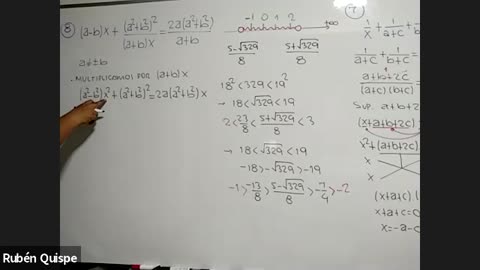 ⑧ (a-b)x + (a²+b²)²/(a+b)x = 2a(a²+b²)/a+b
a≠±b
• MULTIPLICAMOS POR (a+b)x
(a²-b²)x²+(a²+b²)²=2a(a²+b²)x
-1 0 1 2 +∞
5-√329/8 5+√329/8
18²<329<19²
→ 18<√329<19
2<23/8<5+√329/8<3
→ 18<√329<19
-18>-√329>-19
-1>-13/8>5-√329/8>-7/4>-2
⑦
1/x + 1/a+c + 1/b+c
a+b+2c/(a+c)(b+c)
SUP. a+b+2
x²+(a+b+2c)
x
x
(x+a+c)(
x+a+c=0
x=-a-c
Rubén Quispe